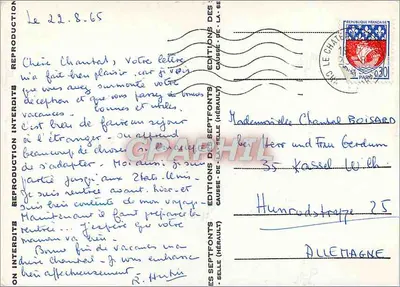 Le 22-8-65
Chère Chantal, votre lettre
m'a fait bien plaisir, car je vois
que vous avez surmonté votre
déception et que vous passez de bonnes
vacances.
bonnes et utiles.
c'est bien de faire un séjour
à l'étranger. on apprend
beaucoup de choses, à
de s'adapter. Moi aussi je suis
partie jusqu'aux Etats-Unis.
Je suis rentrée avant-hier et
suis bien contente de mon voyage.
Maintenant il faut préparer la
rentrée... j'espère que votre
maman va bien.
Bonne fin de vacances ma
chère Chantal. Je vous embrasse
bien affectueusement.
REPRODUCTION INTERDITE
EDITIONS DES SEPTFONTS
CAUSSE-DE-LA-SELLE (HÉRAULT)
REPUBLIQUE FRANÇAISE
0,30
PARIS
CPARAMA
Mademoiselle Chantal BOISARD
bei Herr und Frau Gerdum
35 Kassel Wilh
25
ALLEMAGNE